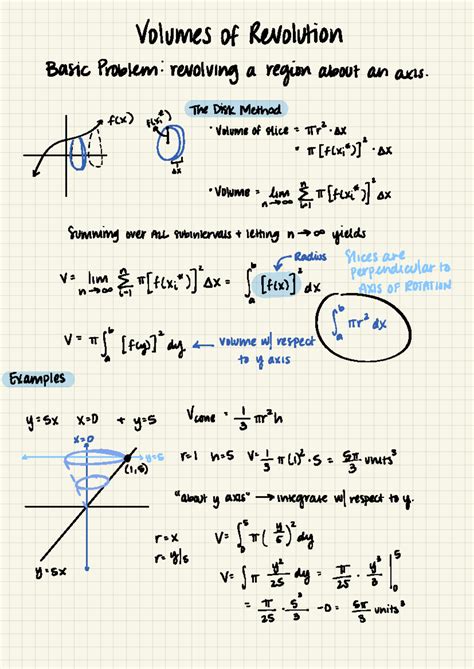 Volumes of Revolution
Basic Problem: revolving a region about an axis.
The Disk Method
f(x)
f(xᵢ*)
Δx
• Volume of slice = πr² · Δx
= π[f(xᵢ*)]² · Δx
• Volume = lim n→∞ Σ i=1 n π[f(xᵢ*)]² Δx
Summing over ALL subintervals + letting n→∞ yields
Radius
Slices are
perpendicular to
AXIS OF ROTATION
V = lim n→∞ Σ i=1 n π[f(xᵢ*)]² Δx = ∫ₐᵇ [f(x)]² dx
∫ₐᵇ πr² dx
V = π∫ₐᵇ [f(y)]² dy ← volume w/ respect
to y axis
Examples
y=5x x=0 + y=5
V cone = 1/3 πr²h
x=0
y=5
(1,5)
y=5x
r=1 h=5 V= 1/3 π(1)² · 5 = 5π/3 units³
"about y axis" → integrate w/ respect to y.
r=x
r=y/5
V= ∫₀⁵ π(y/5)² dy
V= ∫π y²/25 dy = π/25 · y³/3 |₀⁵
= π/25 · 5³/3 - 0 = 5π/3 units³